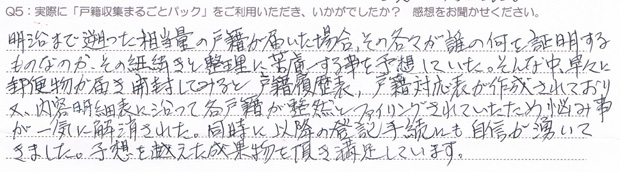 Q5：実際に「戸籍収集まるごとパック」をご利用いただき、いかがでしたか？ 感想をお聞かせください。
明治まで遡った相当量の戸籍が届いた場合、その各々が誰の何を証明する
ものなのか、その紐解きと整理に苦慮する事を予想していた。そんな中、早々に
郵便物が届き開封してみると戸籍履歴表、戸籍対応表が作成されており
又、内容明細表に沿って各戸籍が整然とファイリングされていたため悩み事
が一気に解消された。同時に以降の登記手続にも自信が湧いて
きました。予想を越えた成果物を頂き満足しています。